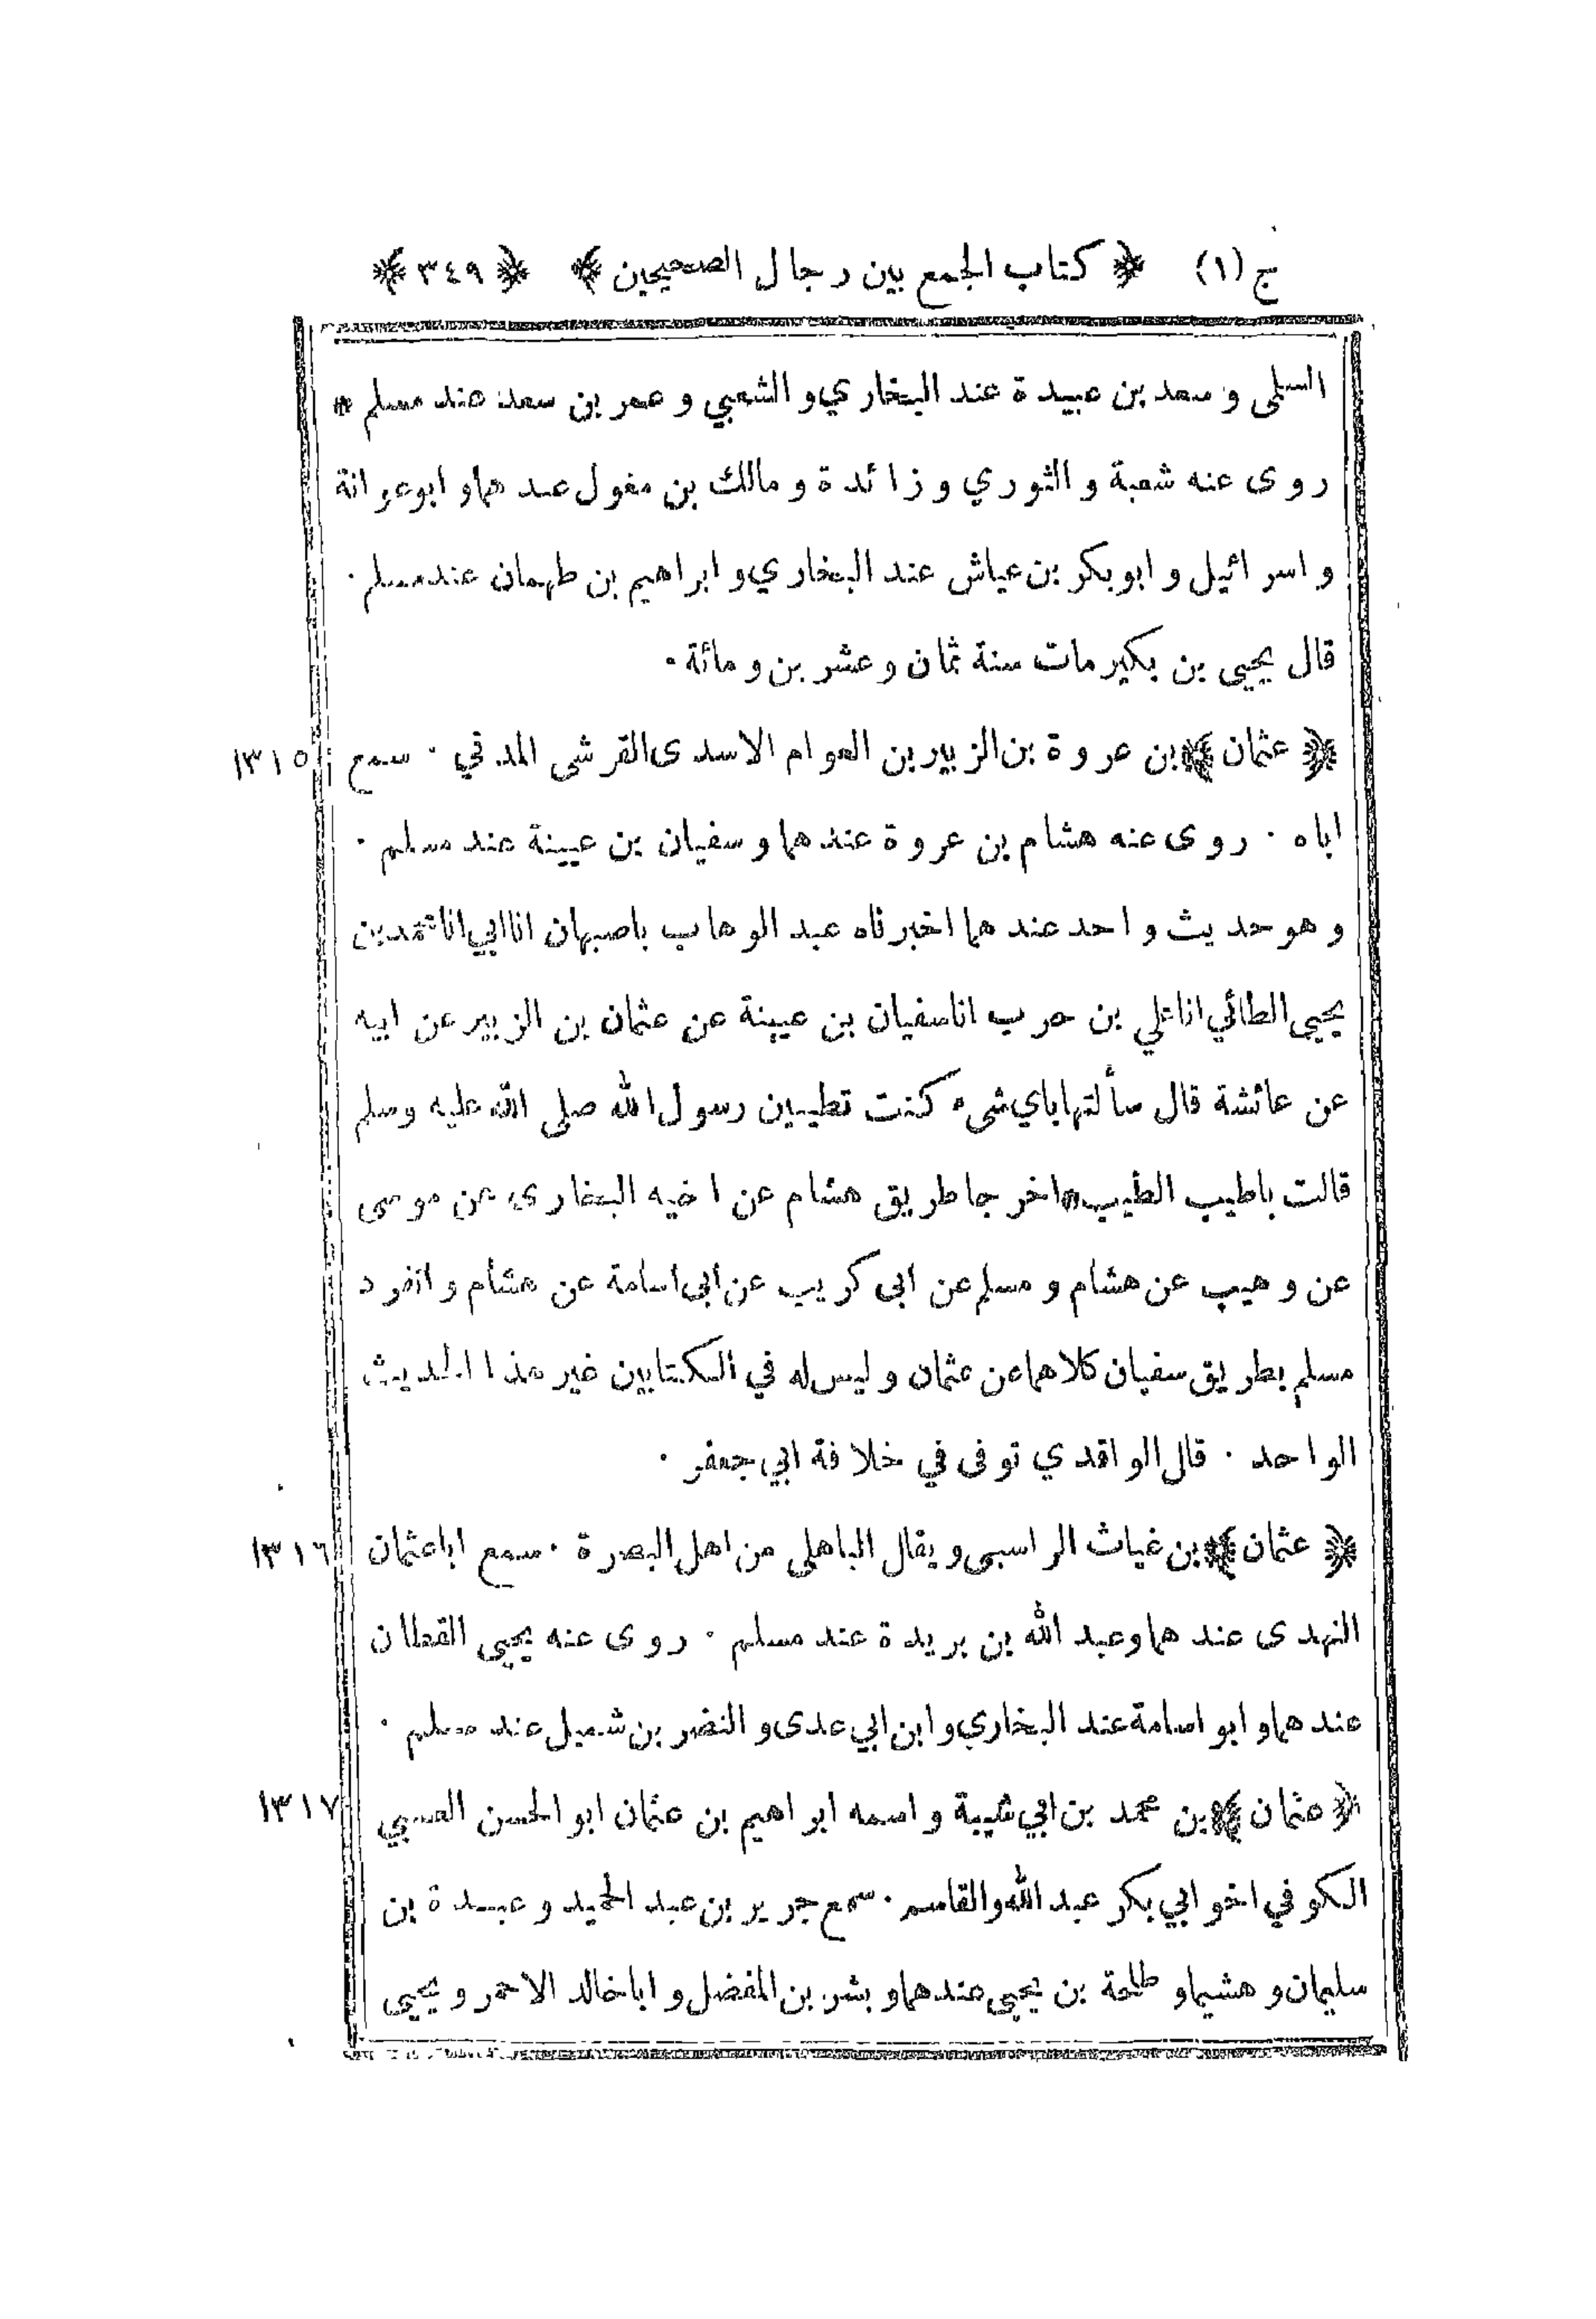 ج (١) ﴿ كتاب الجمع بين رجال الصحيحين ﴾ ﴿ ٣٤٩ ﴾
السلمى و سعد بن عبيدة عند البخاري و الشعبي و عمر بن سعد عند مسلم *
روى عنه شعبة و الثوري و زائدة و مالك بن مغول عند هما و ابو عوانة
و اسرائيل و ابو بكر بن عياش عند البخاري و ابراهيم بن طهمان عند مسلم ·
قال يحيى بن بكير مات سنة ثمان و عشرين و مائة ·
﴿ عثمان ﴾ بن عروة بن الزبير بن العوام الاسدى القرشى المدني · سمع ١٣١٥
اباه · روى عنه هشام بن عروة عندهما و سفيان بن عيينة عند مسلم ·
و هو حديث و احد عند هما اخبر ناه عبد الوهاب باصبهان انا ابي انا محمد بن
يحيى الطائي انا علي بن حرب انا سفيان بن عيينة عن عثمان بن الزبير عن ابيه
عن عائشة قال سألتها باي شىء كنت تطيبين رسول الله صلى الله عليه وسلم
قالت باطيب الطيب * اخرجا طريق هشام عن اخيه البخارى عن موسى
عن وهيب عن هشام و مسلم عن ابى كريب عن ابى اسامة عن هشام و انفرد
مسلم بطريق سفيان كلاهما عن عثمان و ليس له في الكتابين غير هذا الحديث
الواحد · قال الواقدي توفى في خلافة ابي جعفر ·
﴿ عثمان ﴾ بن غياث الراسبى و يقال الباهلى من اهل البصرة · سمع ابا عثمان ١٣١٦
النهدى عند هما وعبد الله بن بريدة عند مسلم · روى عنه يحيى القطان
عند هما و ابو اسامة عند البخاري و ابن ابي عدى و النضر بن شميل عند مسلم ·
﴿ عثمان ﴾ بن محمد بن ابي شيبة و اسمه ابراهيم بن عثمان ابو الحسن العبسي ١٣١٧
الكوفي اخو ابي بكر عبد الله والقاسم · سمع جرير بن عبد الحميد و عبدة بن
سليمان و هشيما و طلحة بن يحيى عندهما و بشر بن المفضل و ابا خالد الاحمر و يحيى